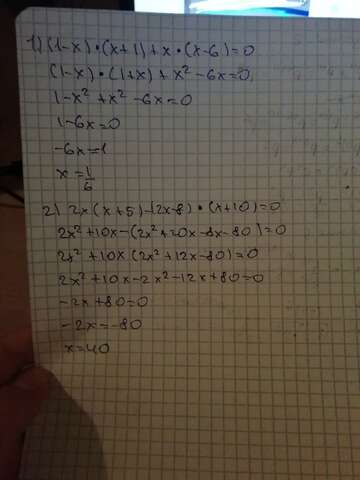 1) (1-x)•(x+1)+x•(x-6)=0
(1-x)•(1+x)+x²-6x=0
1-x²+x²-6x=0
1-6x=0
-6x=1
x=1/6
2) 2x(x+5)-(2x-8)•(x+10)=0
2x²+10x-(2x²+20x-8x-80)=0
2x²+10x(2x²+12x-80)=0
2x²+10x-2x²-12x+80=0
-2x+80=0
-2x=-80
x=40